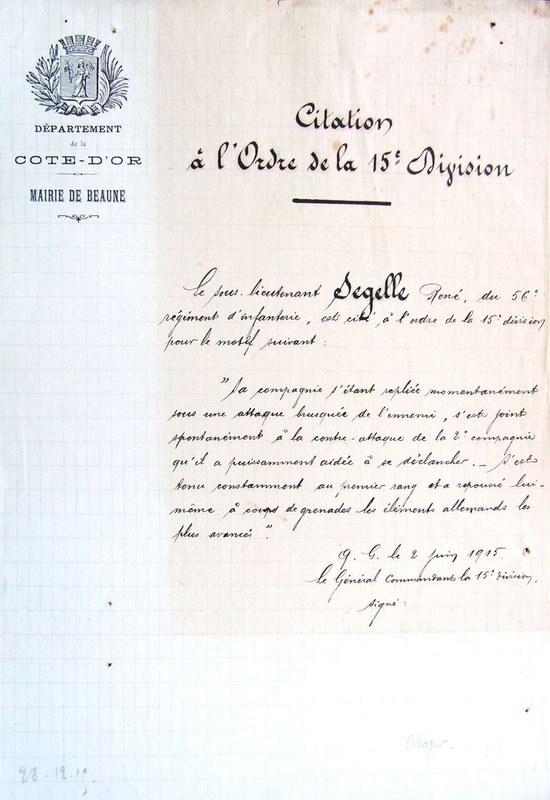 DÉPARTEMENT
de la
COTE-D'OR
MAIRIE DE BEAUNE
Citation
à l'Ordre de la 15e Division
Le sous-lieutenant Segelle René, du 56e
régiment d'infanterie, est cité à l'ordre de la 15e division
pour le motif suivant :
"Sa compagnie s'étant repliée momentanément
sous une attaque brusquée de l'ennemi, s'est joint
spontanément à la contre-attaque de la 2e compagnie
qu'il a puissamment aidée à se déclancher. _ S'est
tenu constamment au premier rang et a repoussé lui-
même à coups de grenades les éléments allemands les
plus avancés".
Q. G. le 2 juin 1915
Le Général Commandant la 15e division,
signé :
28-12-15